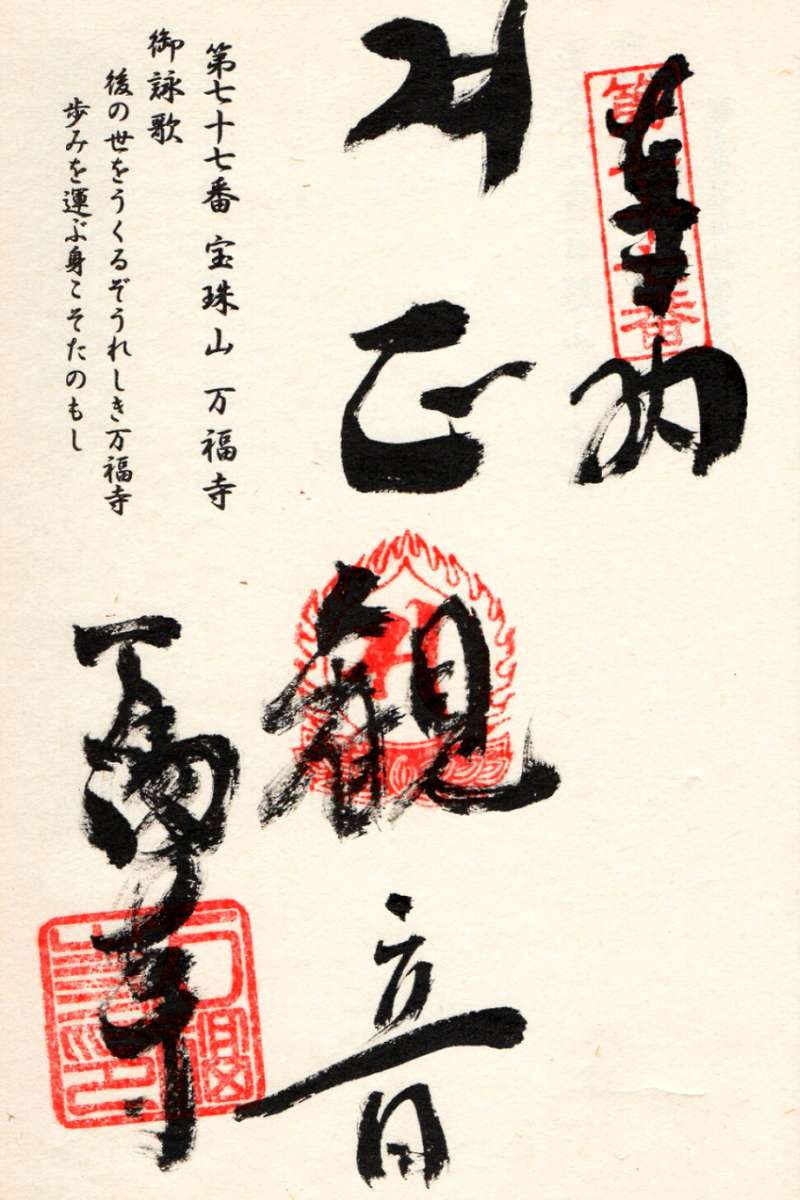 奉納
正観音
第七十七番 宝珠山 万福寺
御詠歌
後の世をうくるぞうれしき万福寺
歩みを運ぶ身こそたのもし
万福寺